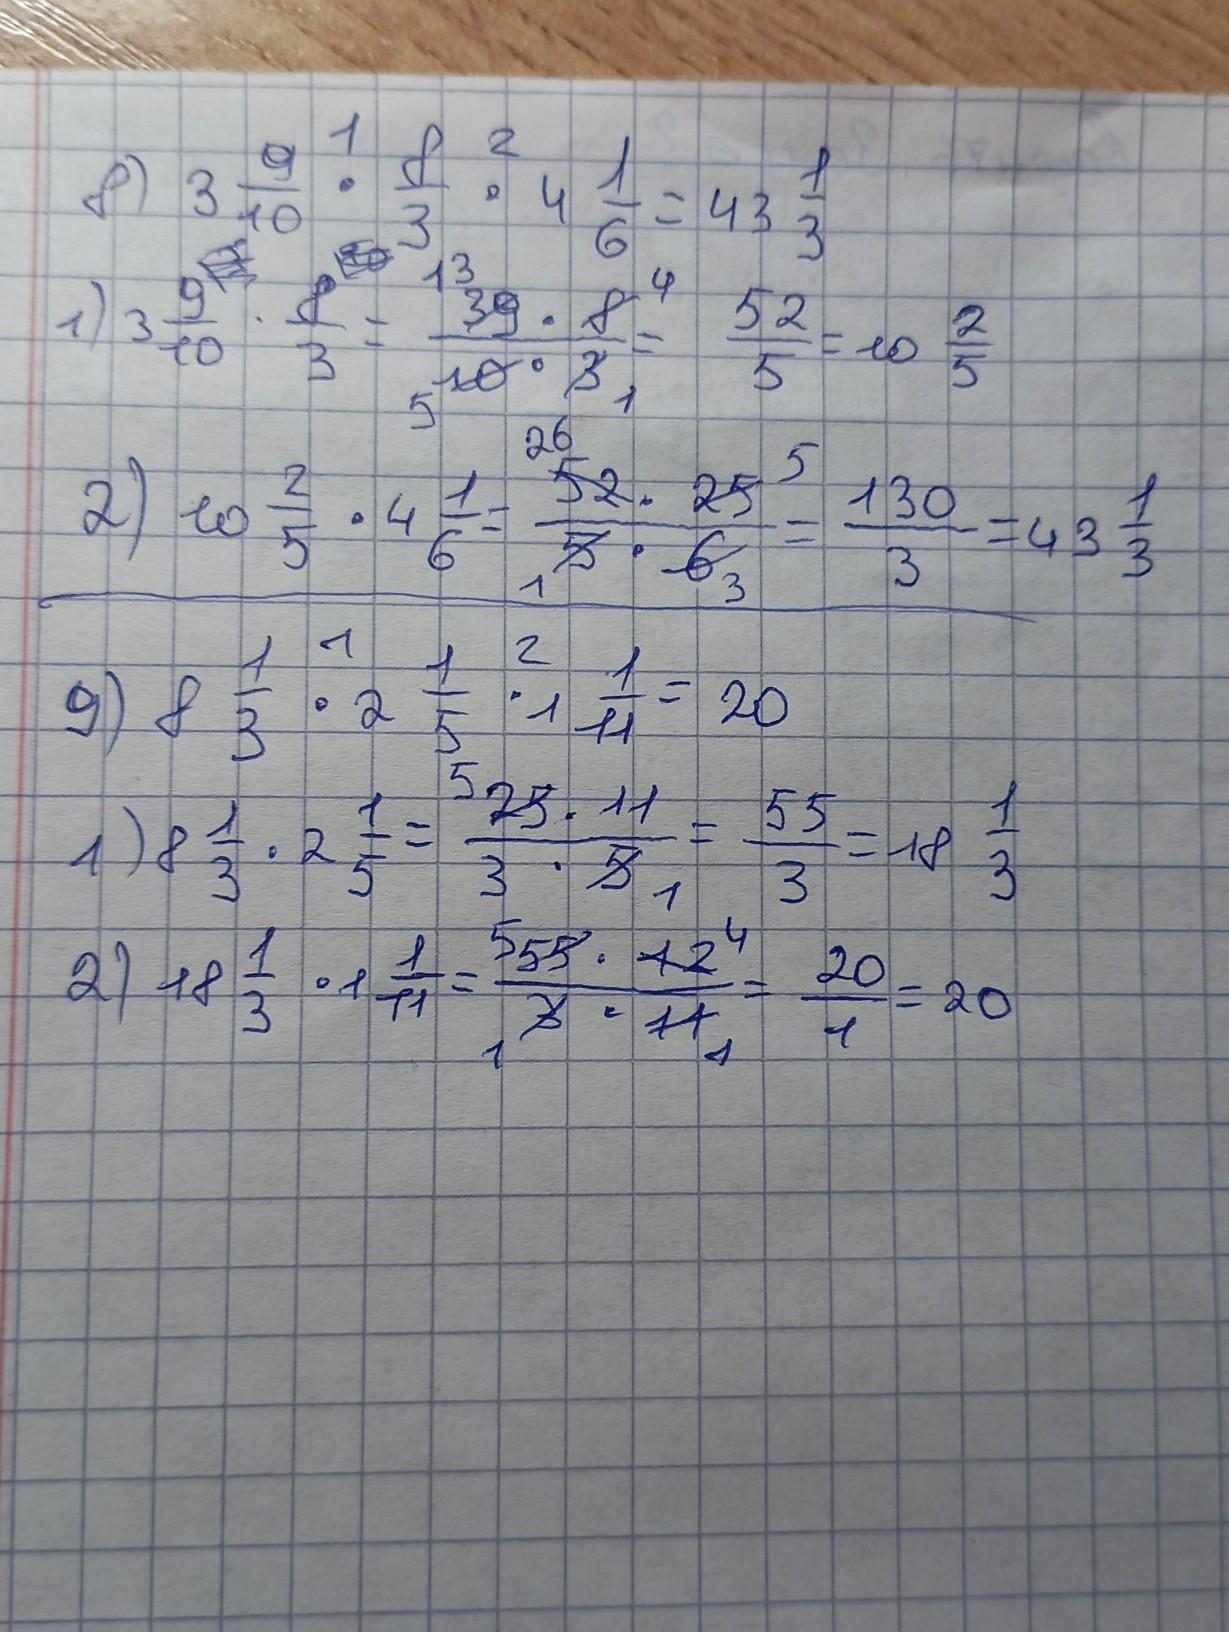 8) 3 9/10 ·¹ 8/3 ·² 4 1/6 = 43 1/3
1) 3 9/10 · 8/3 = 13 39 · 8 4 / 5 10 · 3 1 = 52/5 = 10 2/5
2) 10 2/5 · 4 1/6 = 26 52 · 25 5 / 1 5 · 6 3 = 130/3 = 43 1/3
9) 8 1/3 ·¹ 2 1/5 ·² 1 1/11 = 20
1) 8 1/3 · 2 1/5 = 5 25 · 11 / 3 · 5 1 = 55/3 = 18 1/3
2) 18 1/3 · 1 1/11 = 5 55 · 12 4 / 1 3 · 11 1 = 20/1 = 20